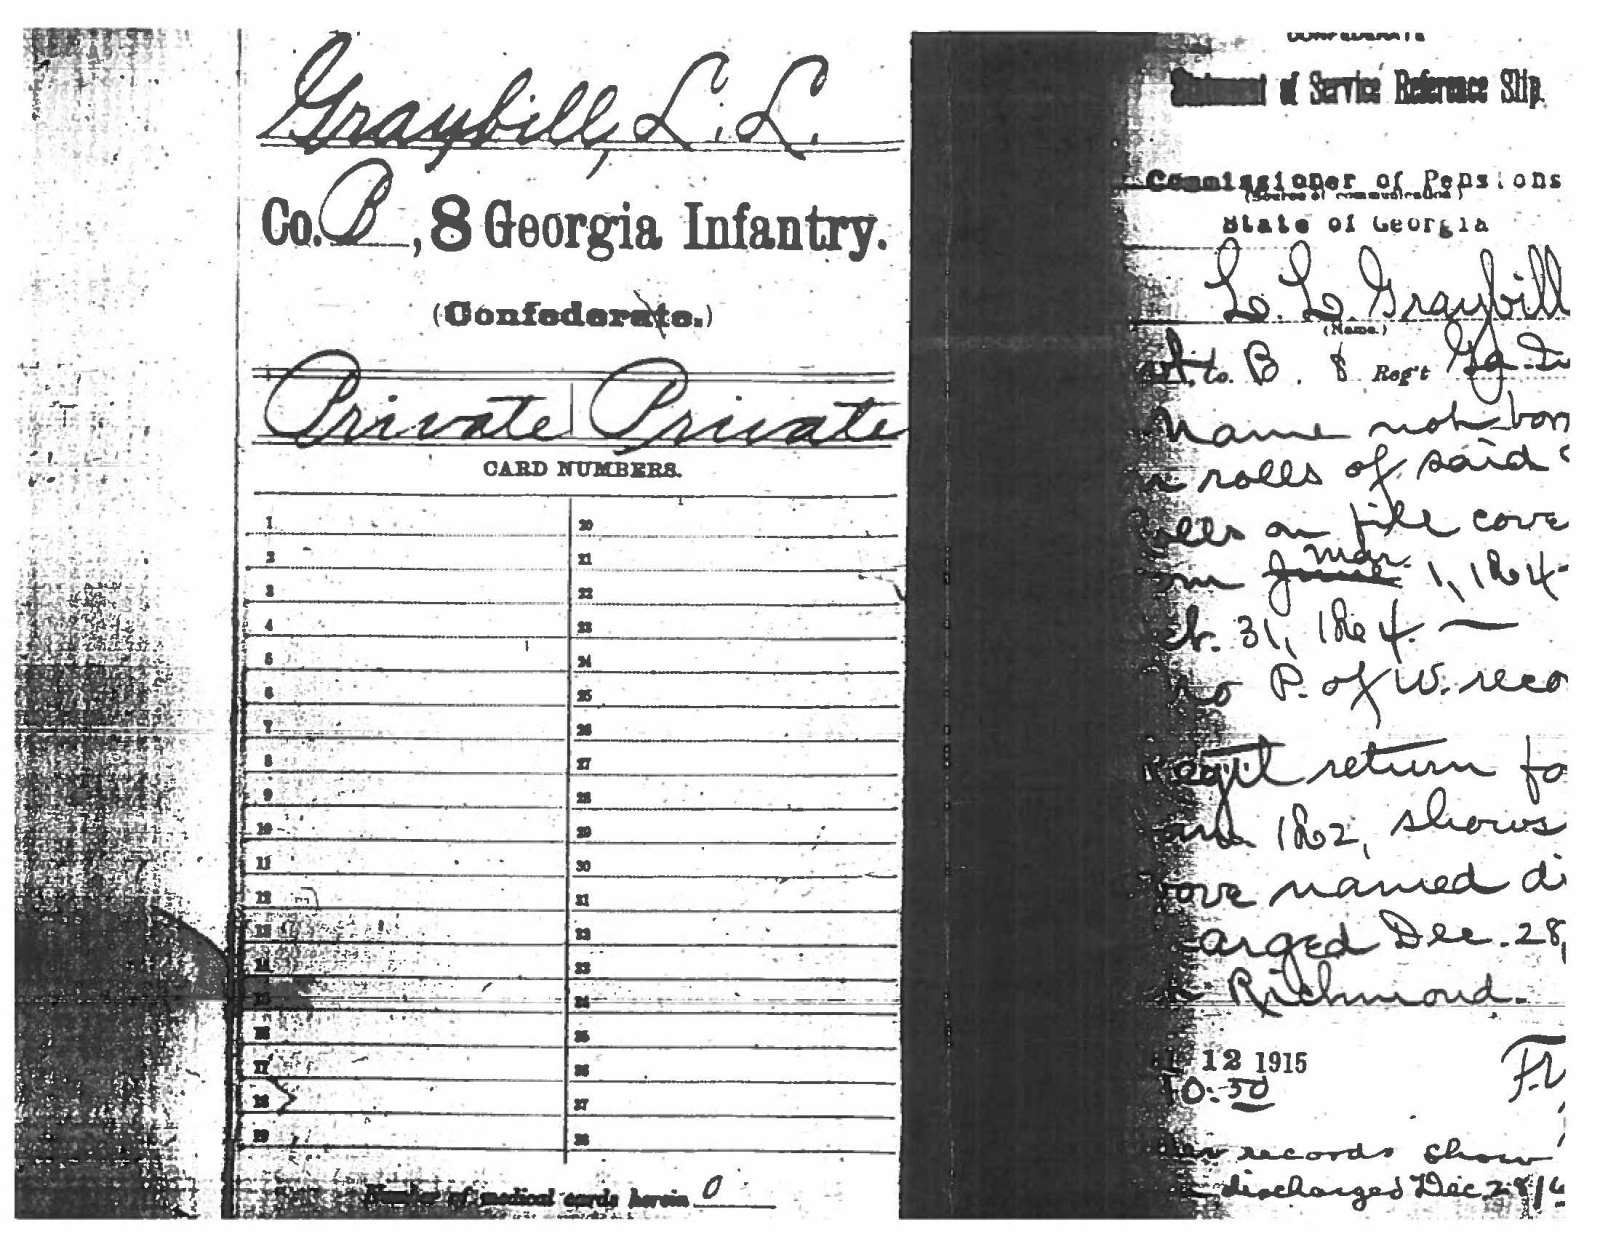 Graybill, L. L.
Co. B, 8 Georgia Infantry.
(Confederate.)
Private Private
CARD NUMBERS.
1 20
2 21
3 22
4 23
5 24
6 25
7 26
8 27
9 28
10 29
11 30
12 31
13 32
14 33
15 34
16 35
17 36
18 37
19 38
Number of medical cards herein 0
CONFEDERATE
Statement of Service Reference Slip.
Commissioner of Pensions
(Source of communication)
State of Georgia
L. L. Graybill
(Name.)
Co. B. 8 Reg't Ga.
Name not
rolls of said
on file
Mar.
June 1, 1864
31, 1864. —
no P. of W.
return
1862, shows
named
Dec. 28,
Richmond.
12 1915
records show
discharged Dec. 28/